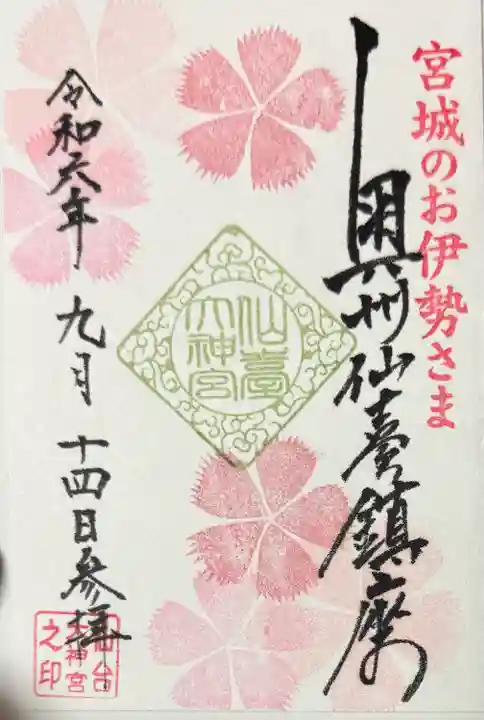 宮城のお伊勢さま
奥州仙臺鎮座
仙臺
大神宮
令和六年九月十四日参拝
仙台
大神宮
之印